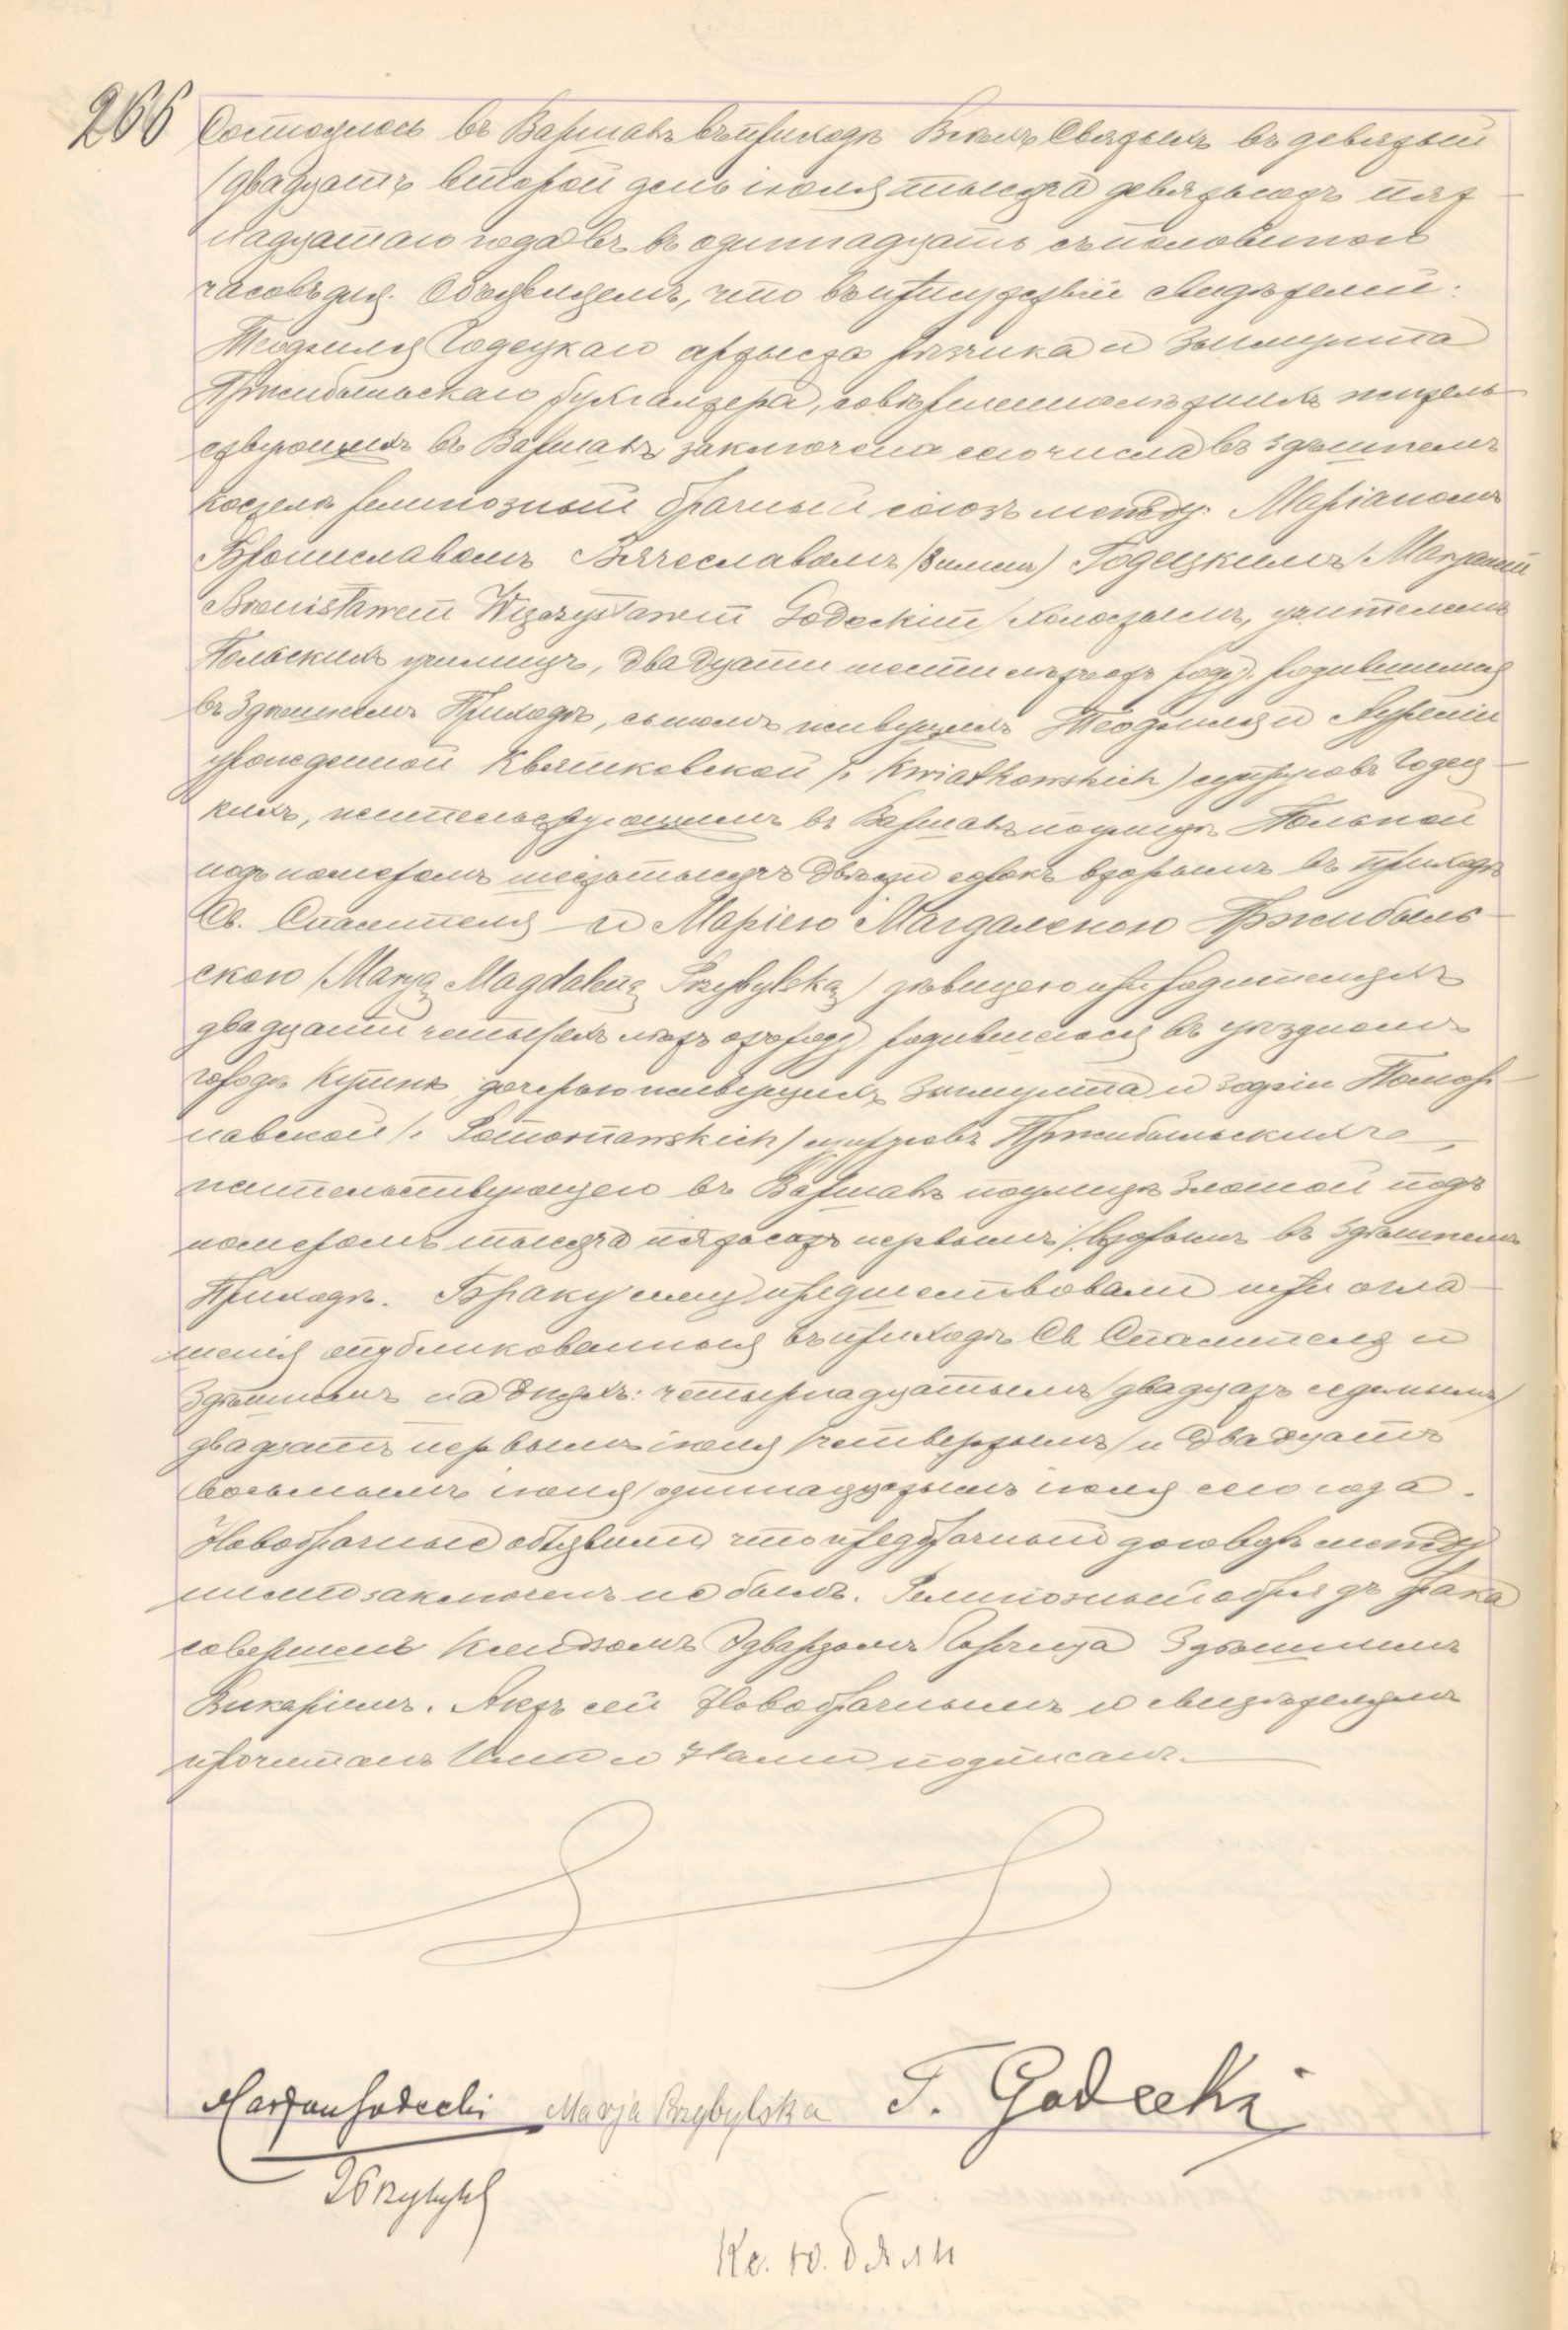 266 Состоялось въ Варшавѣ въ приходѣ Всѣхъ Святыхъ въ девятый
/двадцать второй день іюля тысяча девятьсотъ пят
надцатаго года въ въ одиннадцать съ половиною
часовъ дня. Объявляемъ, что въ присутствіи свидѣтелей:
Теофиля Годецкаго артыста рѣзчика и Зыгмунта
Пржибыльскаго бухгалтера, совершеннолѣтнихъ житель
ствующихъ въ Варшавѣ, заключенъ сего числа въ здѣшнемъ
костелѣ религіозный брачный союзъ между: Маріаномъ
Брониславомъ Вячеславомъ (3 именъ) Годецкимъ /Maryanem
Bronisławem Więczysławem Godeckim/ холостымъ, учителемъ
Польскихъ училищъ, двадцати шести лѣтъ отъ роду, родившимся
въ здѣшнемъ Приходѣ, сыномъ живущихъ Теофиля и Авреліи
урожденной Квятковской /z Kwiatkowskich/ супруговъ Годец
кихъ, жительствующимъ въ Варшавѣ по улицѣ Польной
подъ номеромъ шесть тысячъ двѣсти сорокъ вторымъ въ приходѣ
Св. Спасителя – и Маріею Магдаленою Пржибыль
скою /Maryą Magdaleną Przybylską/ дѣвицею при родителяхъ
двадцати четырехъ лѣтъ отъ роду, родившеюся въ уѣздномъ
городѣ дочерью живущихъ Зыгмунта и Зофіи Помор
навской /z Pomornawskich/ супруговъ Пржибыльскихъ,
жительствующею въ Варшавѣ по улицѣ Златой подъ
номеромъ тысяча пятьсотъ первымъ /вторымъ въ здѣшнемъ
Приходѣ. Браку сему предшествовали три огла
шенія опубликованныя въ приходѣ Св Спасителя и
здѣшнемъ на дняхъ: четырнадцатымъ /двадцать седьмымъ/
двадцать первымъ іюня /четвертымъ/ и двадцать
восьмымъ іюня /одиннадцатымъ іюля сего года.
Новобрачные объявили что предбрачный договоръ между
ними заключенъ не былъ. Религіозный обрядъ брака
совершенъ Ксендзомъ Эдвардомъ здѣшнимъ
Викаріемъ. Актъ сей Новобрачнымъ и свидѣтелямъ
прочитанъ Ими и Нами подписанъ.
Marjan Godecki Marja Przybylska T. Godecki